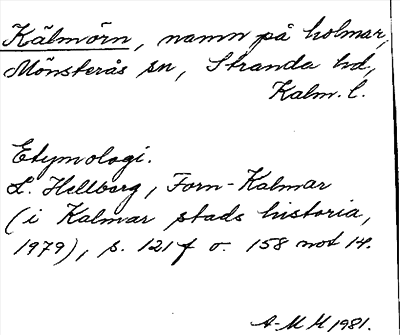 Kälmörn, namn på holmar,
Mönsterås sn, Stranda hd,
Kalm. l.
Etymologi.
L. Hellberg, Forn-Kalmar
(i Kalmar stads historia,
1979), s. 121 f o. 158 not 14.
A-M M 1981.